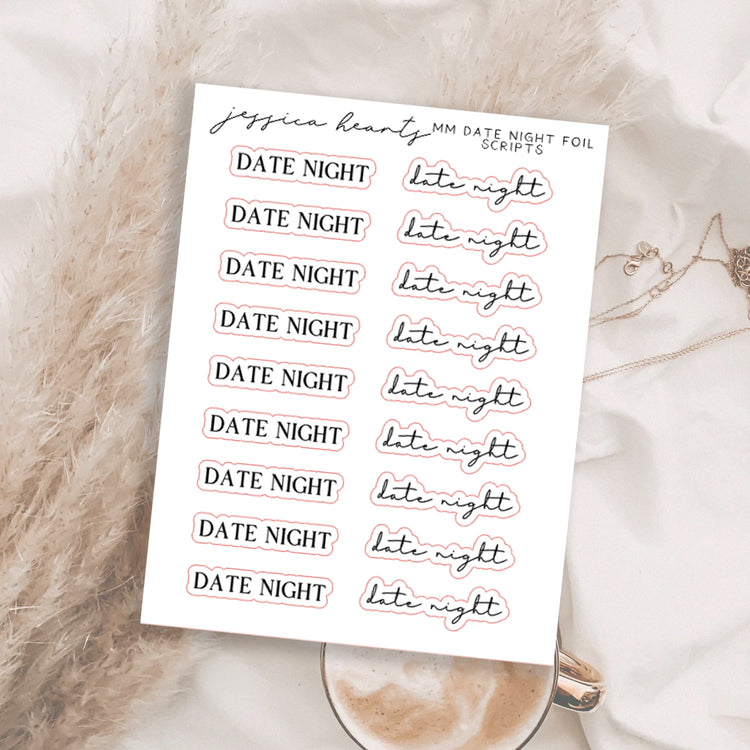 jessica hearts MM DATE NIGHT FOIL
SCRIPTS
DATE NIGHT date night
DATE NIGHT date night
DATE NIGHT date night
DATE NIGHT date night
DATE NIGHT date night
DATE NIGHT date night
DATE NIGHT date night
DATE NIGHT date night
DATE NIGHT date night